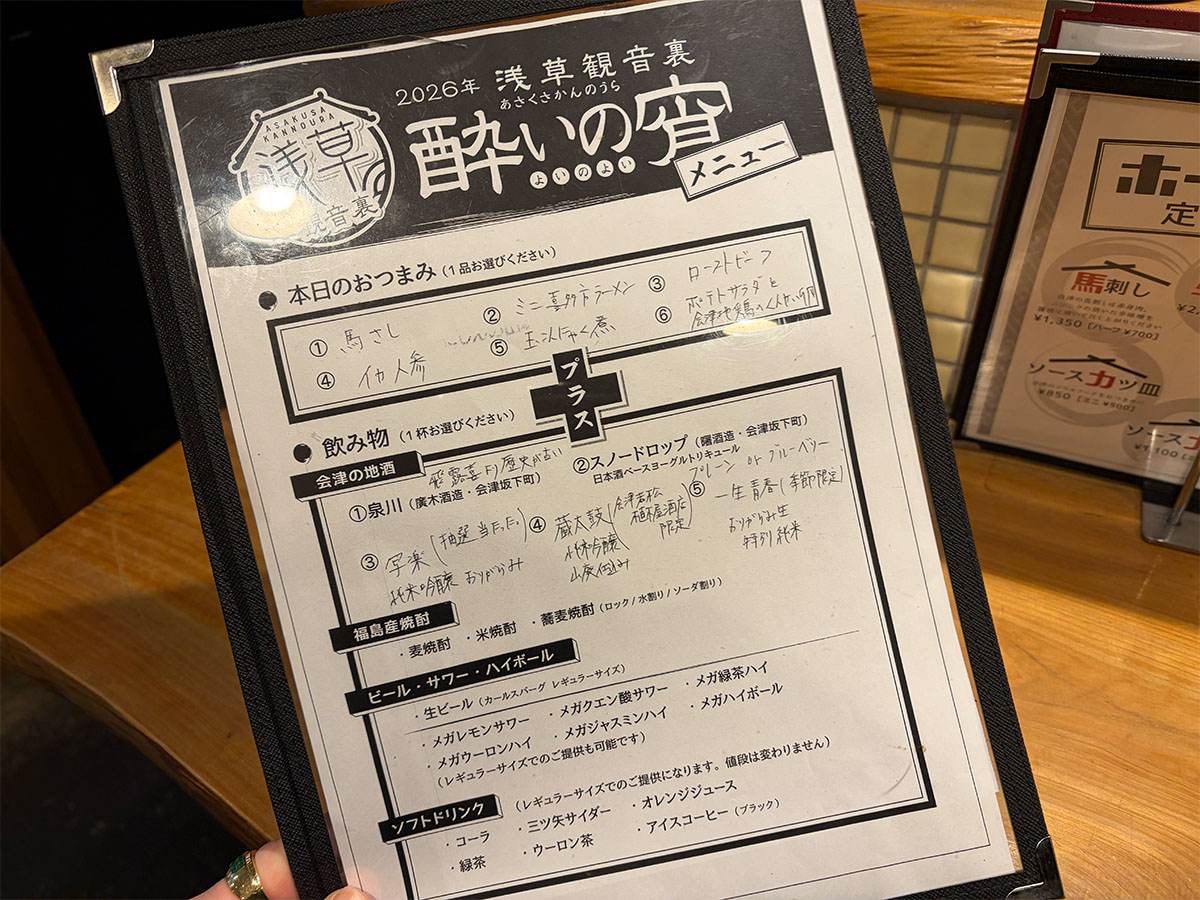 ASAKUSA
KANNOURA
浅草
観音裏
2026年 浅草観音裏
あさくさかんのうら
酔いの宵
よいのよい
メニュー
本日のおつまみ(1品お選びください)
① 馬さし
② ミニ喜多方ラーメン
③ ローストビーフ
④ イカ人参
⑤ 玉こんにゃく煮
⑥ ポテトサラダと
会津地鶏のくんせい卵
プラス
飲み物(1杯お選びください)
会津の地酒
飛露喜より歴史が古い
①泉川(廣木酒造・会津坂下町)
②スノードロップ(曙酒造・会津坂下町)
日本酒ベースヨーグルトリキュール
プレーン or ブルーベリー
③ 写楽(抽選当たった)
純米吟醸 おりがらみ
④ 蔵太鼓(会津若松
植木屋酒店
限定)
純米吟醸
山廃仕込み
⑤ 一生青春(季節限定)
おりがらみ生
特別純米
福島産焼酎
・麦焼酎 ・米焼酎 ・蕎麦焼酎(ロック/水割り/ソーダ割り)
ビール・サワー・ハイボール
・生ビール(カールスバーグ レギュラーサイズ)
・メガレモンサワー ・メガクエン酸サワー ・メガ緑茶ハイ
・メガウーロンハイ ・メガジャスミンハイ ・メガハイボール
(レギュラーサイズでのご提供も可能です)
ソフトドリンク
(レギュラーサイズでのご提供になります。値段は変わりません)
・コーラ ・三ツ矢サイダー ・オレンジジュース
・緑茶 ・ウーロン茶 ・アイスコーヒー(ブラック)
ホー
定
馬刺し
¥1,350 [ハーフ ¥700]
ソースカツ皿
¥850 [ミニ ¥500]
ソースカ
¥1,100